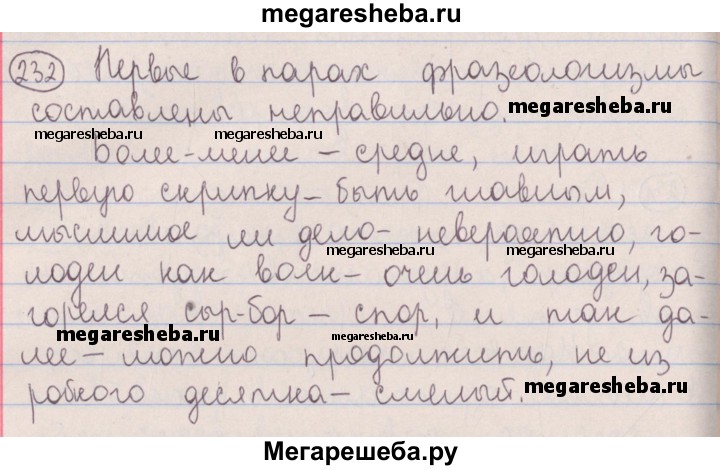 megaresheba.ru
232 Первые в парах фразеологизмы
составлены неправильно. megaresheba.ru
megaresheba.ru megaresheba.ru
Более-менее – средне, играть
первую скрипку – быть главным,
мыслимое ли дело – невероятно, го-
megaresheba.ru megaresheba.ru
лоден как волк – очень голоден, за-
горелся сыр-бор – спор, и так да-
megaresheba.ru megaresheba.ru
лее – можно продолжить, не из
робкого десятка – смелый. megaresheba.ru
Мегарешеба.ру